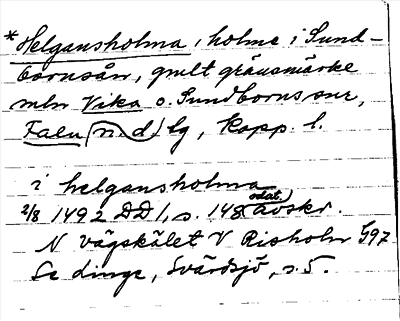 *Helgansholma, holme i Sund-
bornsån, gmlt gränsmärke
mln Vika o. Sundborns snr,
Falu n d lg, Kopp. l.
i helgansholma
2/8 1492 DD 1, s. 148 (odat.) avskr.
N vägskälet V Risholn G97
Se Linge, Svärdsjö, s. 5.